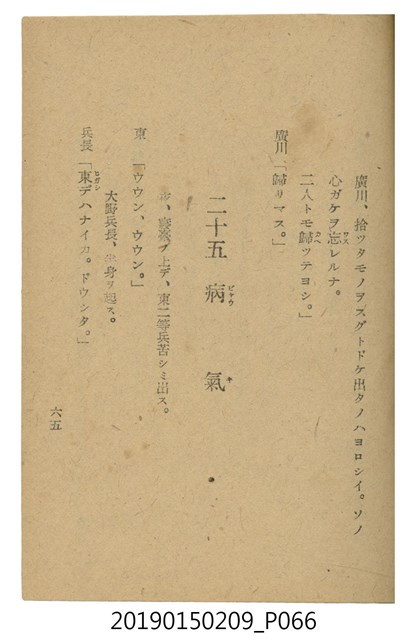 廣川、拾ツタモノヲスグトドケ出タノハヨロシイ。ソノ
心ガケヲ忘レルナ。
二人トモ歸ツテヨシ。」
廣川「歸リマス。」
二十五 病氣
、寢臺ノ上デ、東二等兵苦シミ出ス。
東 「ウウン、ウウン。」
大野兵長、半身ヲ起ス。
兵長「東デハナイカ。ドウシタ。」
六五
20190150209_P066